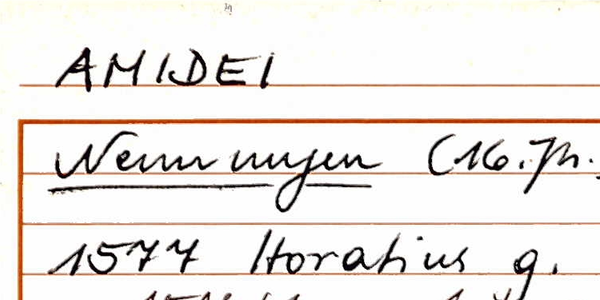 AMIDEI
Nennungen (16. Jh.
1577 Horatius g.